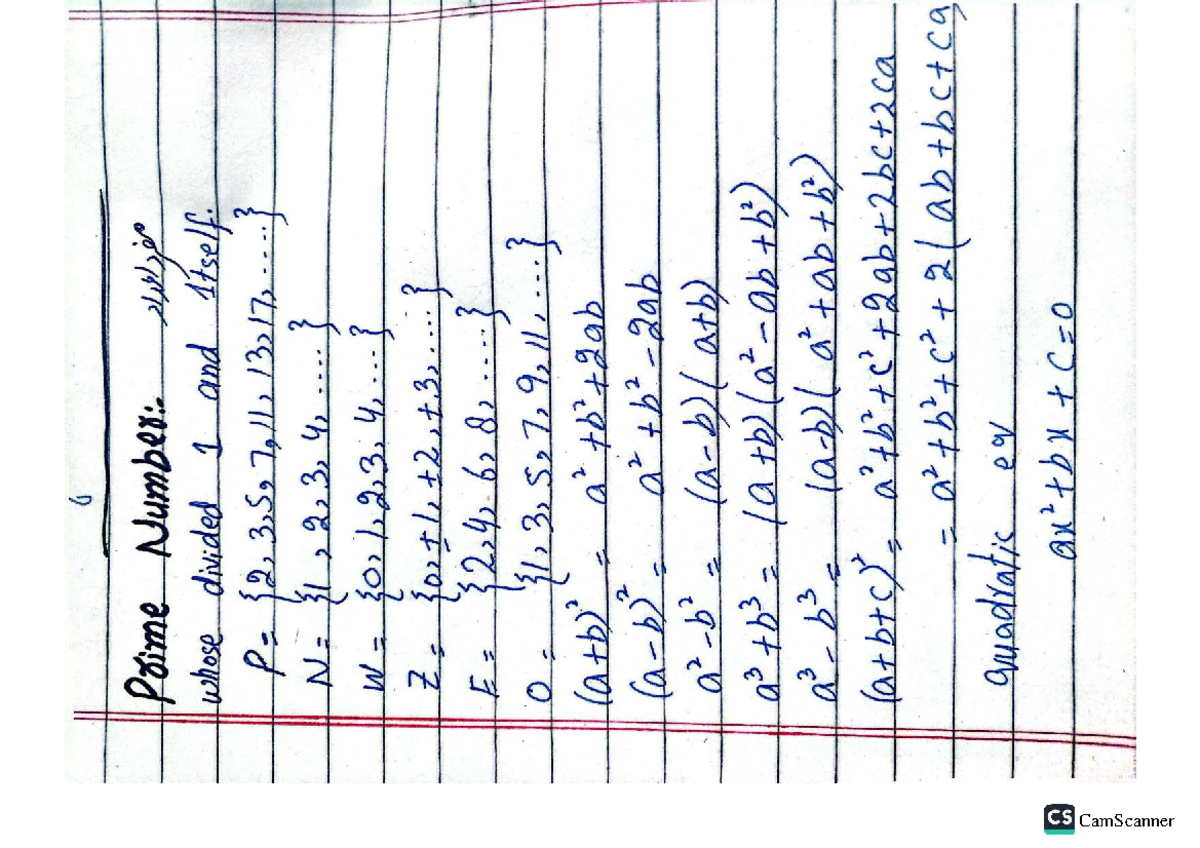 Prime Number:- مفرد اعداد
whose divided 1 and Itself.
P = {2, 3, 5, 7, 11, 13, 17, .....}
N = {1, 2, 3, 4, ....}
W = {0, 1, 2, 3, 4, ....}
Z = {0, ±1, ±2, ±3, ....}
E = {2, 4, 6, 8, .....}
O = {1, 3, 5, 7, 9, 11, ....}
(a+b)² = a² + b² + 2ab
(a-b)² = a² + b² - 2ab
a² - b² = (a-b)(a+b)
a³ + b³ = (a+b)(a² - ab + b²)
a³ - b³ = (a-b)(a² + ab + b²)
(a+b+c)² = a² + b² + c² + 2ab + 2bc + 2ca
= a² + b² + c² + 2(ab + bc + ca
quadratic eq
ax² + bx + c = 0
CS CamScanner